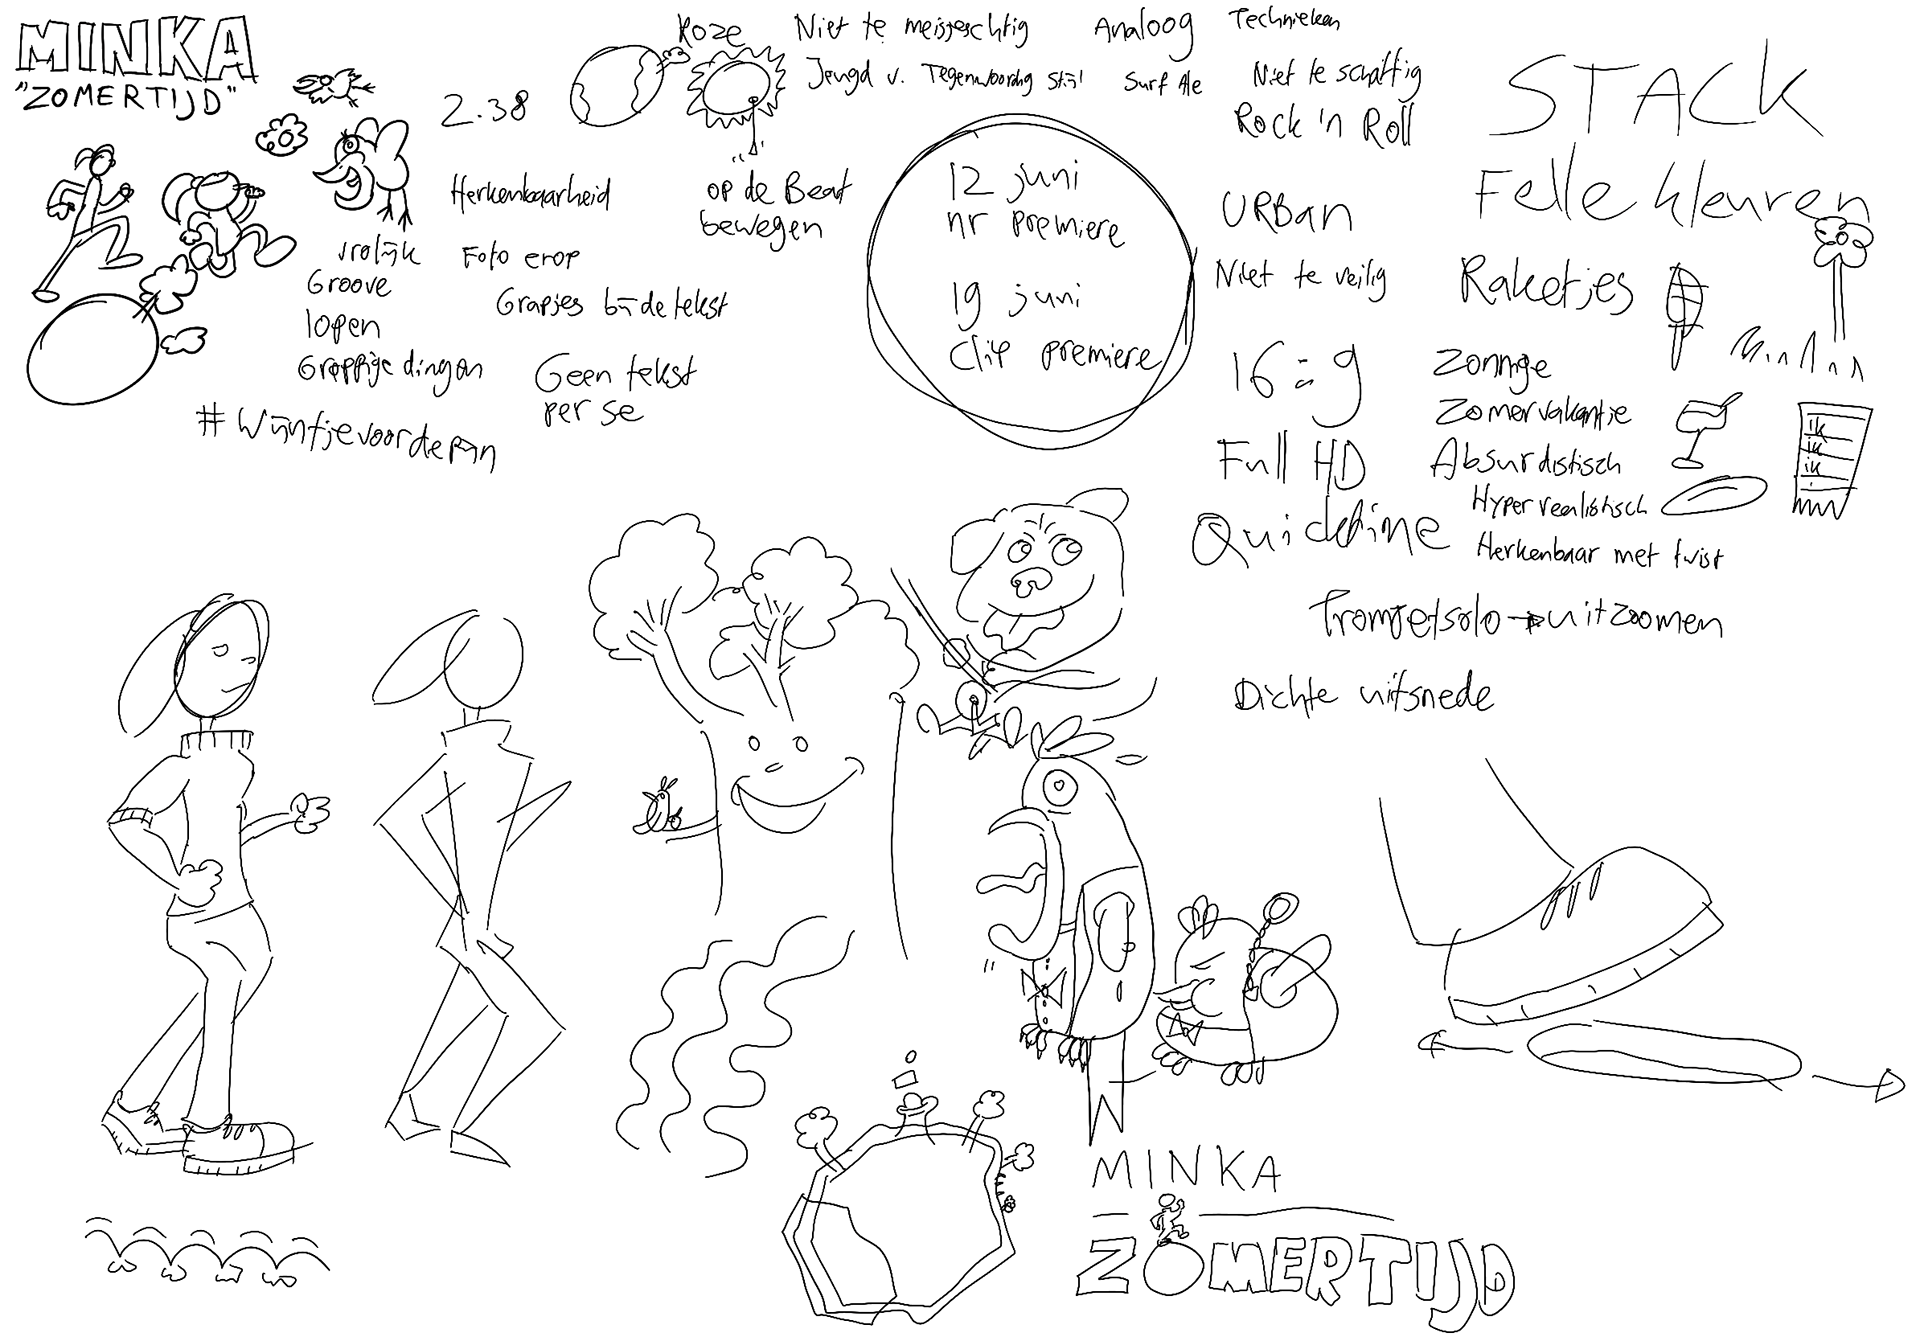 MINKA
"ZOMERTIJD"
2.38
Roze
Niet te meisjesachtig
Analoog
Technieken
Jeugd v. Tegenwoordig stijl
Surf
Niet te schattig
Rock 'n Roll
STACK
Felle kleuren
Herkenbaarheid
op de Beat
bewegen
12 juni
nr premiere
19 juni
clip premiere
URBan
Niet te veilig
Raketjes
vrolijk
Groove
lopen
Grappige dingen
Foto erop
Grapjes bij de tekst
Geen tekst
per se
#Wijntjevoordepijn
16:9
Full HD
Quicktime
Zonnige
Zomervakantie
Absurdistisch
Hyperrealistisch
Herkenbaar met twist
ik
ik
ik
Trompetsolo → uitzoomen
Dichte uitsnede
MINKA
ZOMERTIJD